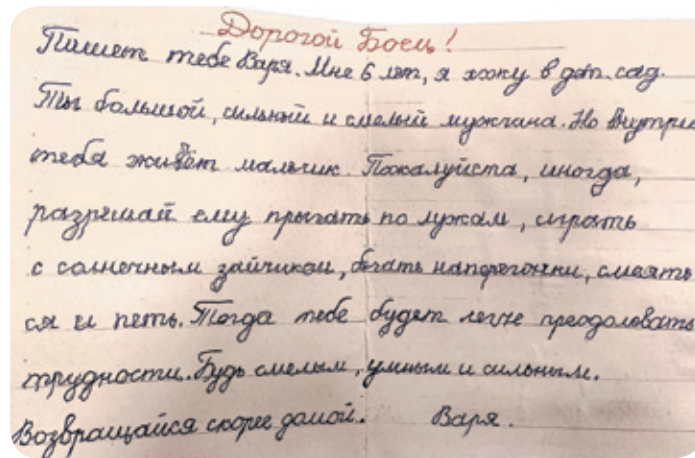 Дорогой Боец!
Пишет тебе Варя. Мне 6 лет, я хожу в дет. сад.
Ты большой, сильный и смелый мужчина. Но внутри
тебя живёт мальчик. Пожалуйста, иногда,
разрешай ему прыгать по лужам, играть
с солнечным зайчиком, бегать наперегонки, смеять
ся и петь. Тогда тебе будет легче преодолевать
трудности. Будь смелым, умным и сильным.
Возвращайся скорее домой. Варя.